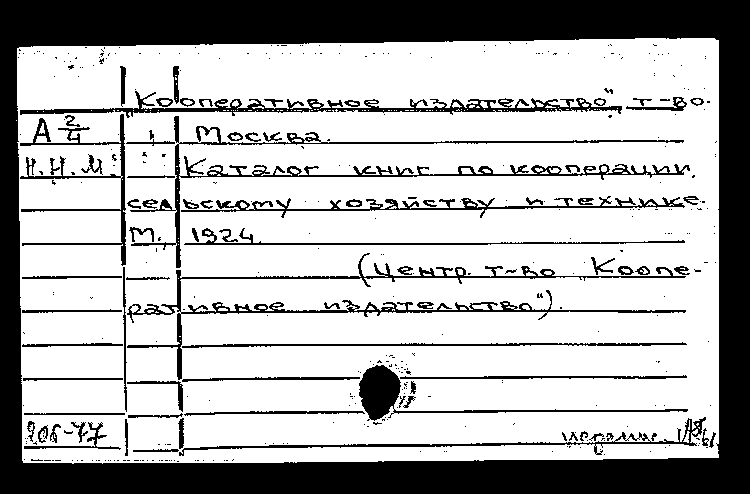 „Кооперативное издательство", т-во.
А 2/4 Москва.
Н.Н.М. Каталог книг по кооперации,
сельскому хозяйству и технике.
М., 1924.
(Центр. т-во „Коопе-
ративное издательство").
206-77